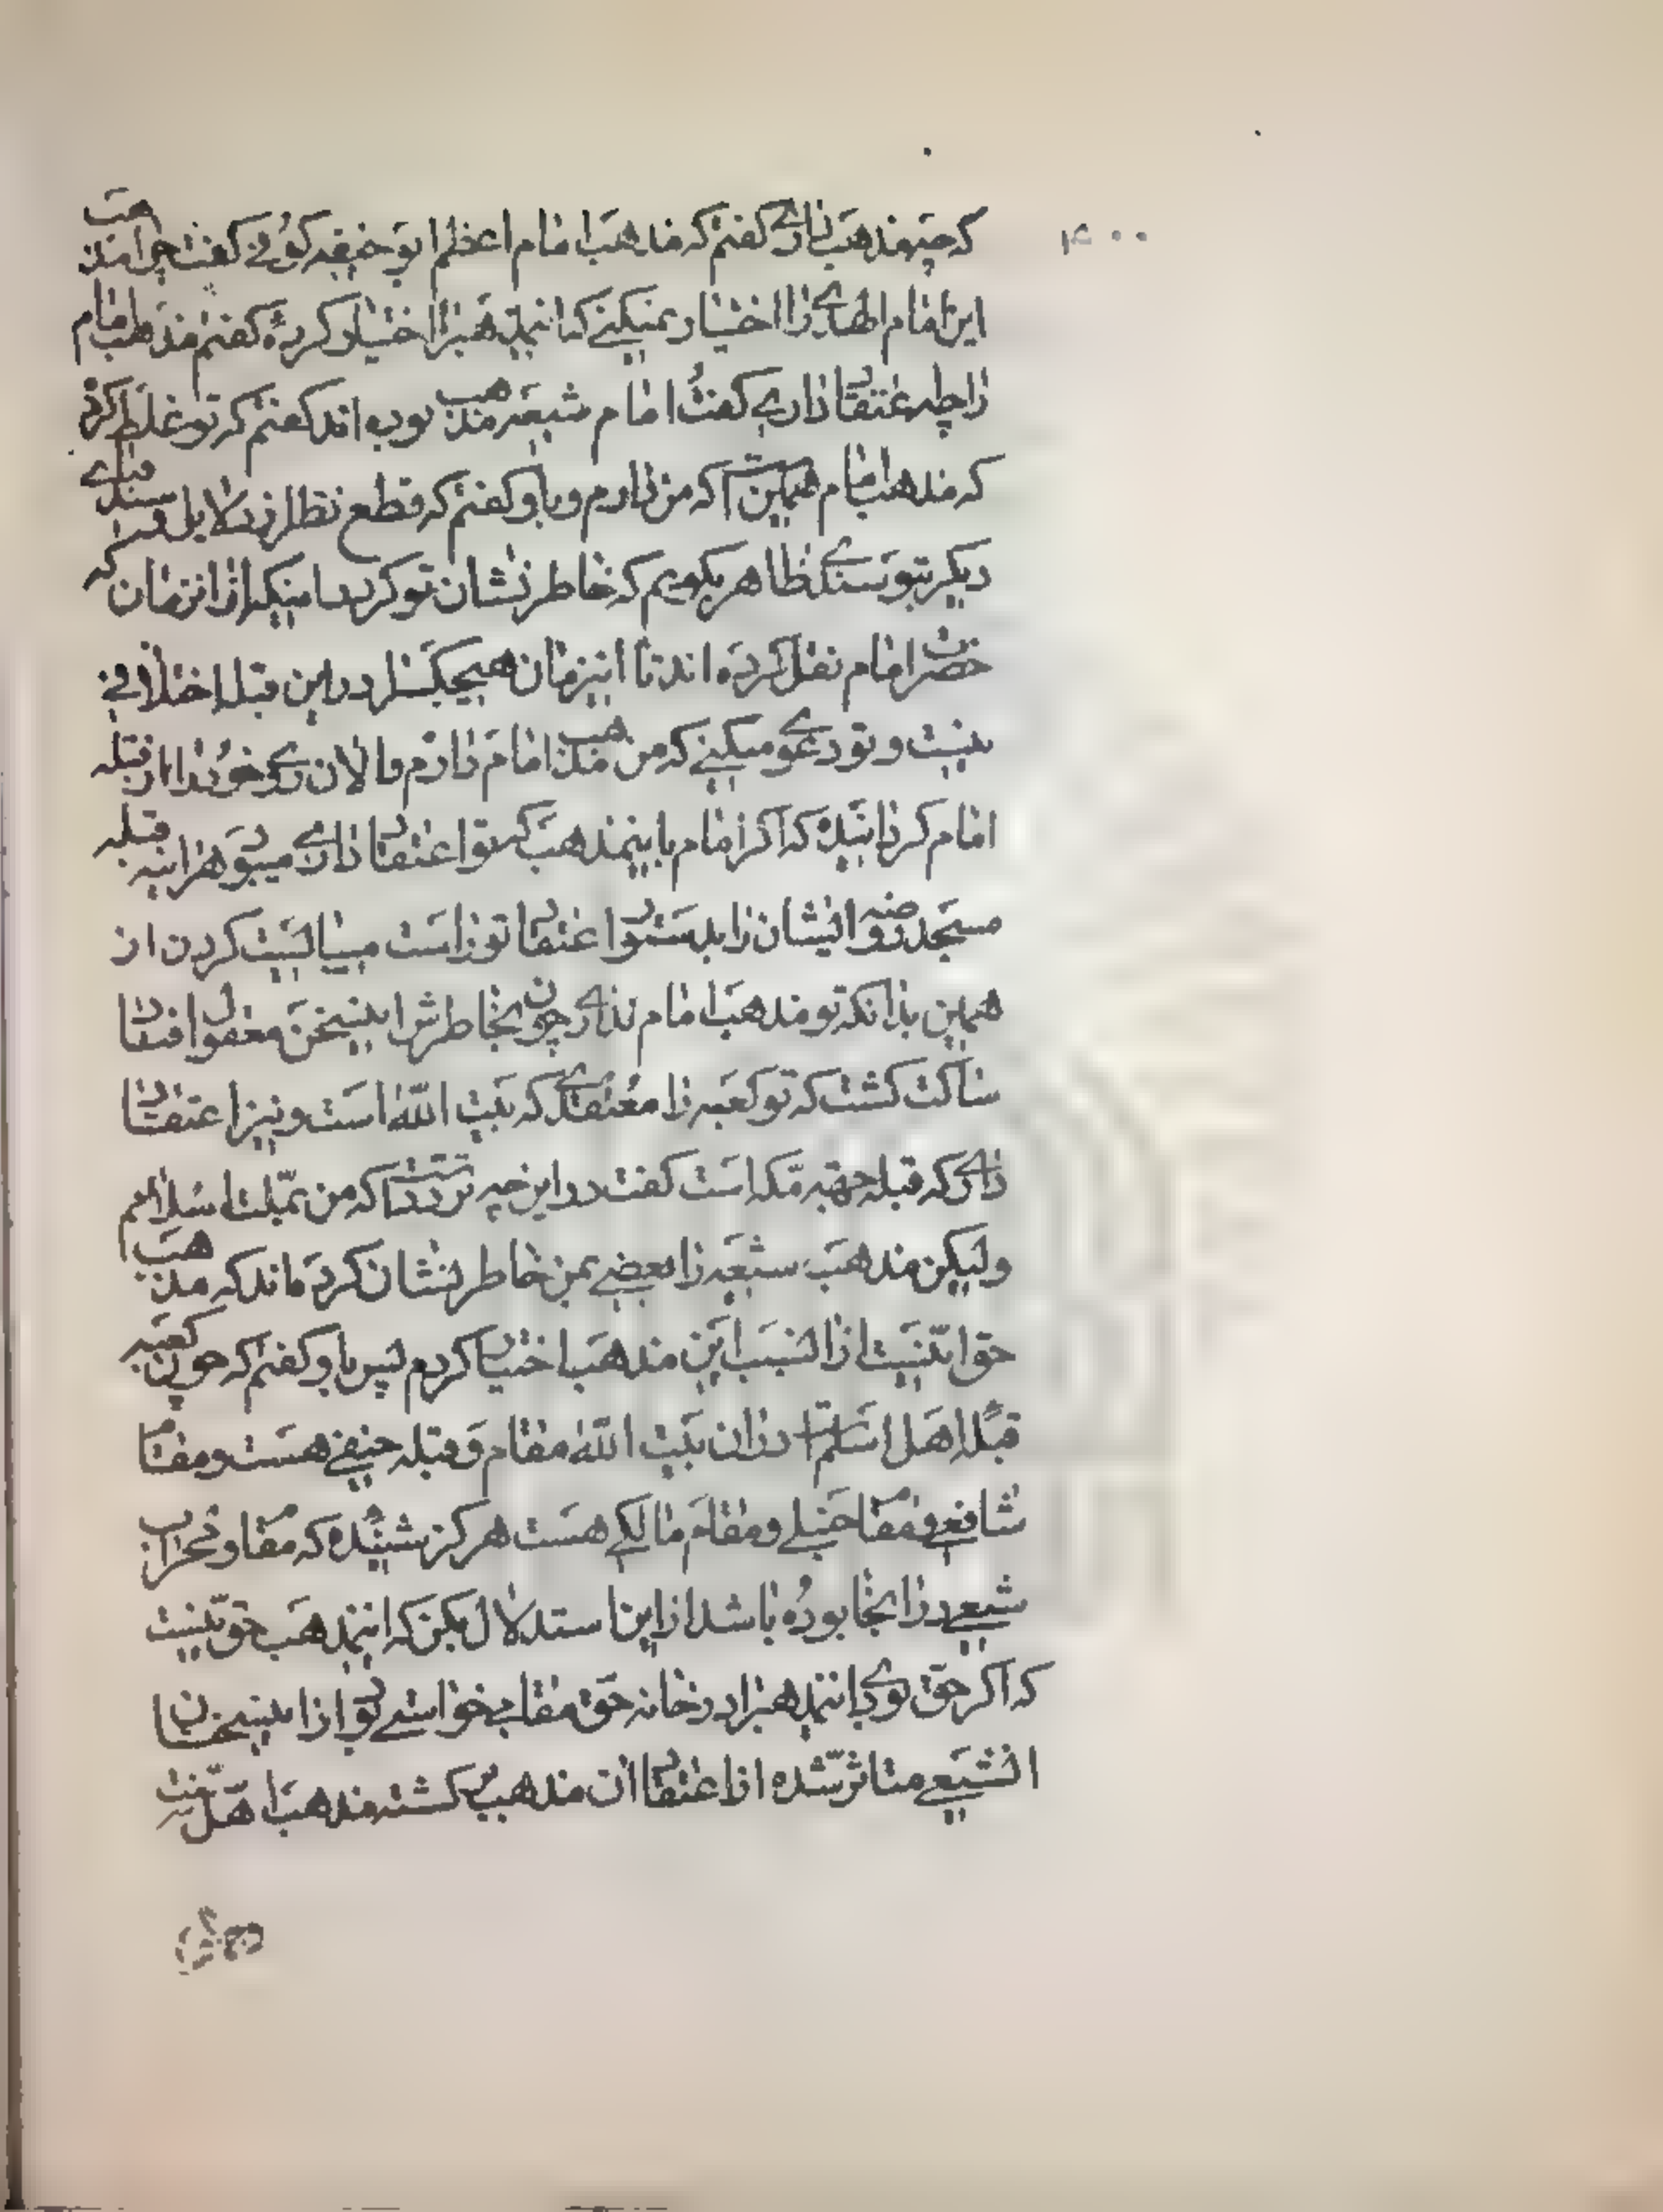 ۴۰۰
که چه مذهب داری کفتم که مذهب امام اعظم ابو حنیفه کوفی کفت چرا مذهب
این امام الهدی را اختیار نمیکنی که اینمذهب را اختیار کرده کفتم مذهب امام
را چه اعتقاد داری کفت امام شیعه مذهب بوده اند کفتم که تو غلط کرده
که مذهب امام همین است که من دارم و باو کفتم که قطع نظر از دلایل
دیکر بتو سندی ظاهر بکویم که خاطر نشان تو کردد میکه از آنزمان که
حضرت امام نقل کرده اند تا اینزمان هیچکس را در این قبله اختلافی
نیست و تو دعوی میکنی که من مذهب امام دارم و الان روی خود را از قبله
امام کردانیده که اکر امام باینمذهب که تو اعتقاد داری میبود هراینه قبله
مسجد روضه ایشان را بدستور اعتقاد تو راست میبایست کردن از
همین بدانکه تو مذهب امام نداری چون بخاطرش اینسخن معقول افتاد
ساکت کشت که تو کعبه را معتقدی که بیت الله است و نیز اعتقاد
داری که قبله جهته مکه است کفت در این چه تردد است که من بملت اسلامم
ولیکن مذهب شیعه را بعضی بمن خاطر نشان کرده اند که مذهب
حق اینست از انسبب این مذهب اختیار کردم پس باو کفتم که چون کعبه
قبله اهل اسلام است در ان بیت الله مقام و قبله حنیفی هست و مقام
شافعی و مقام حنبلی و مقام مالکی هست هرکز شنیده که مقام و محراب
شیعی در انجا بوده باشد از این استدلال بکن که اینمذهب حق نیست
که اکر حق بودی اینمذهب را در خانه حق مقامی خواستی بود از اینسخنان
انشیعی متاثر شده از اعتقاد ان مذهب برکشته مذهب اهل سنت